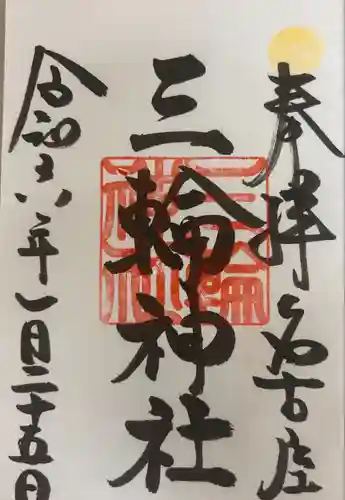 奉拝 名古屋
三輪神社
令和六年一月二十五日
三輪神社